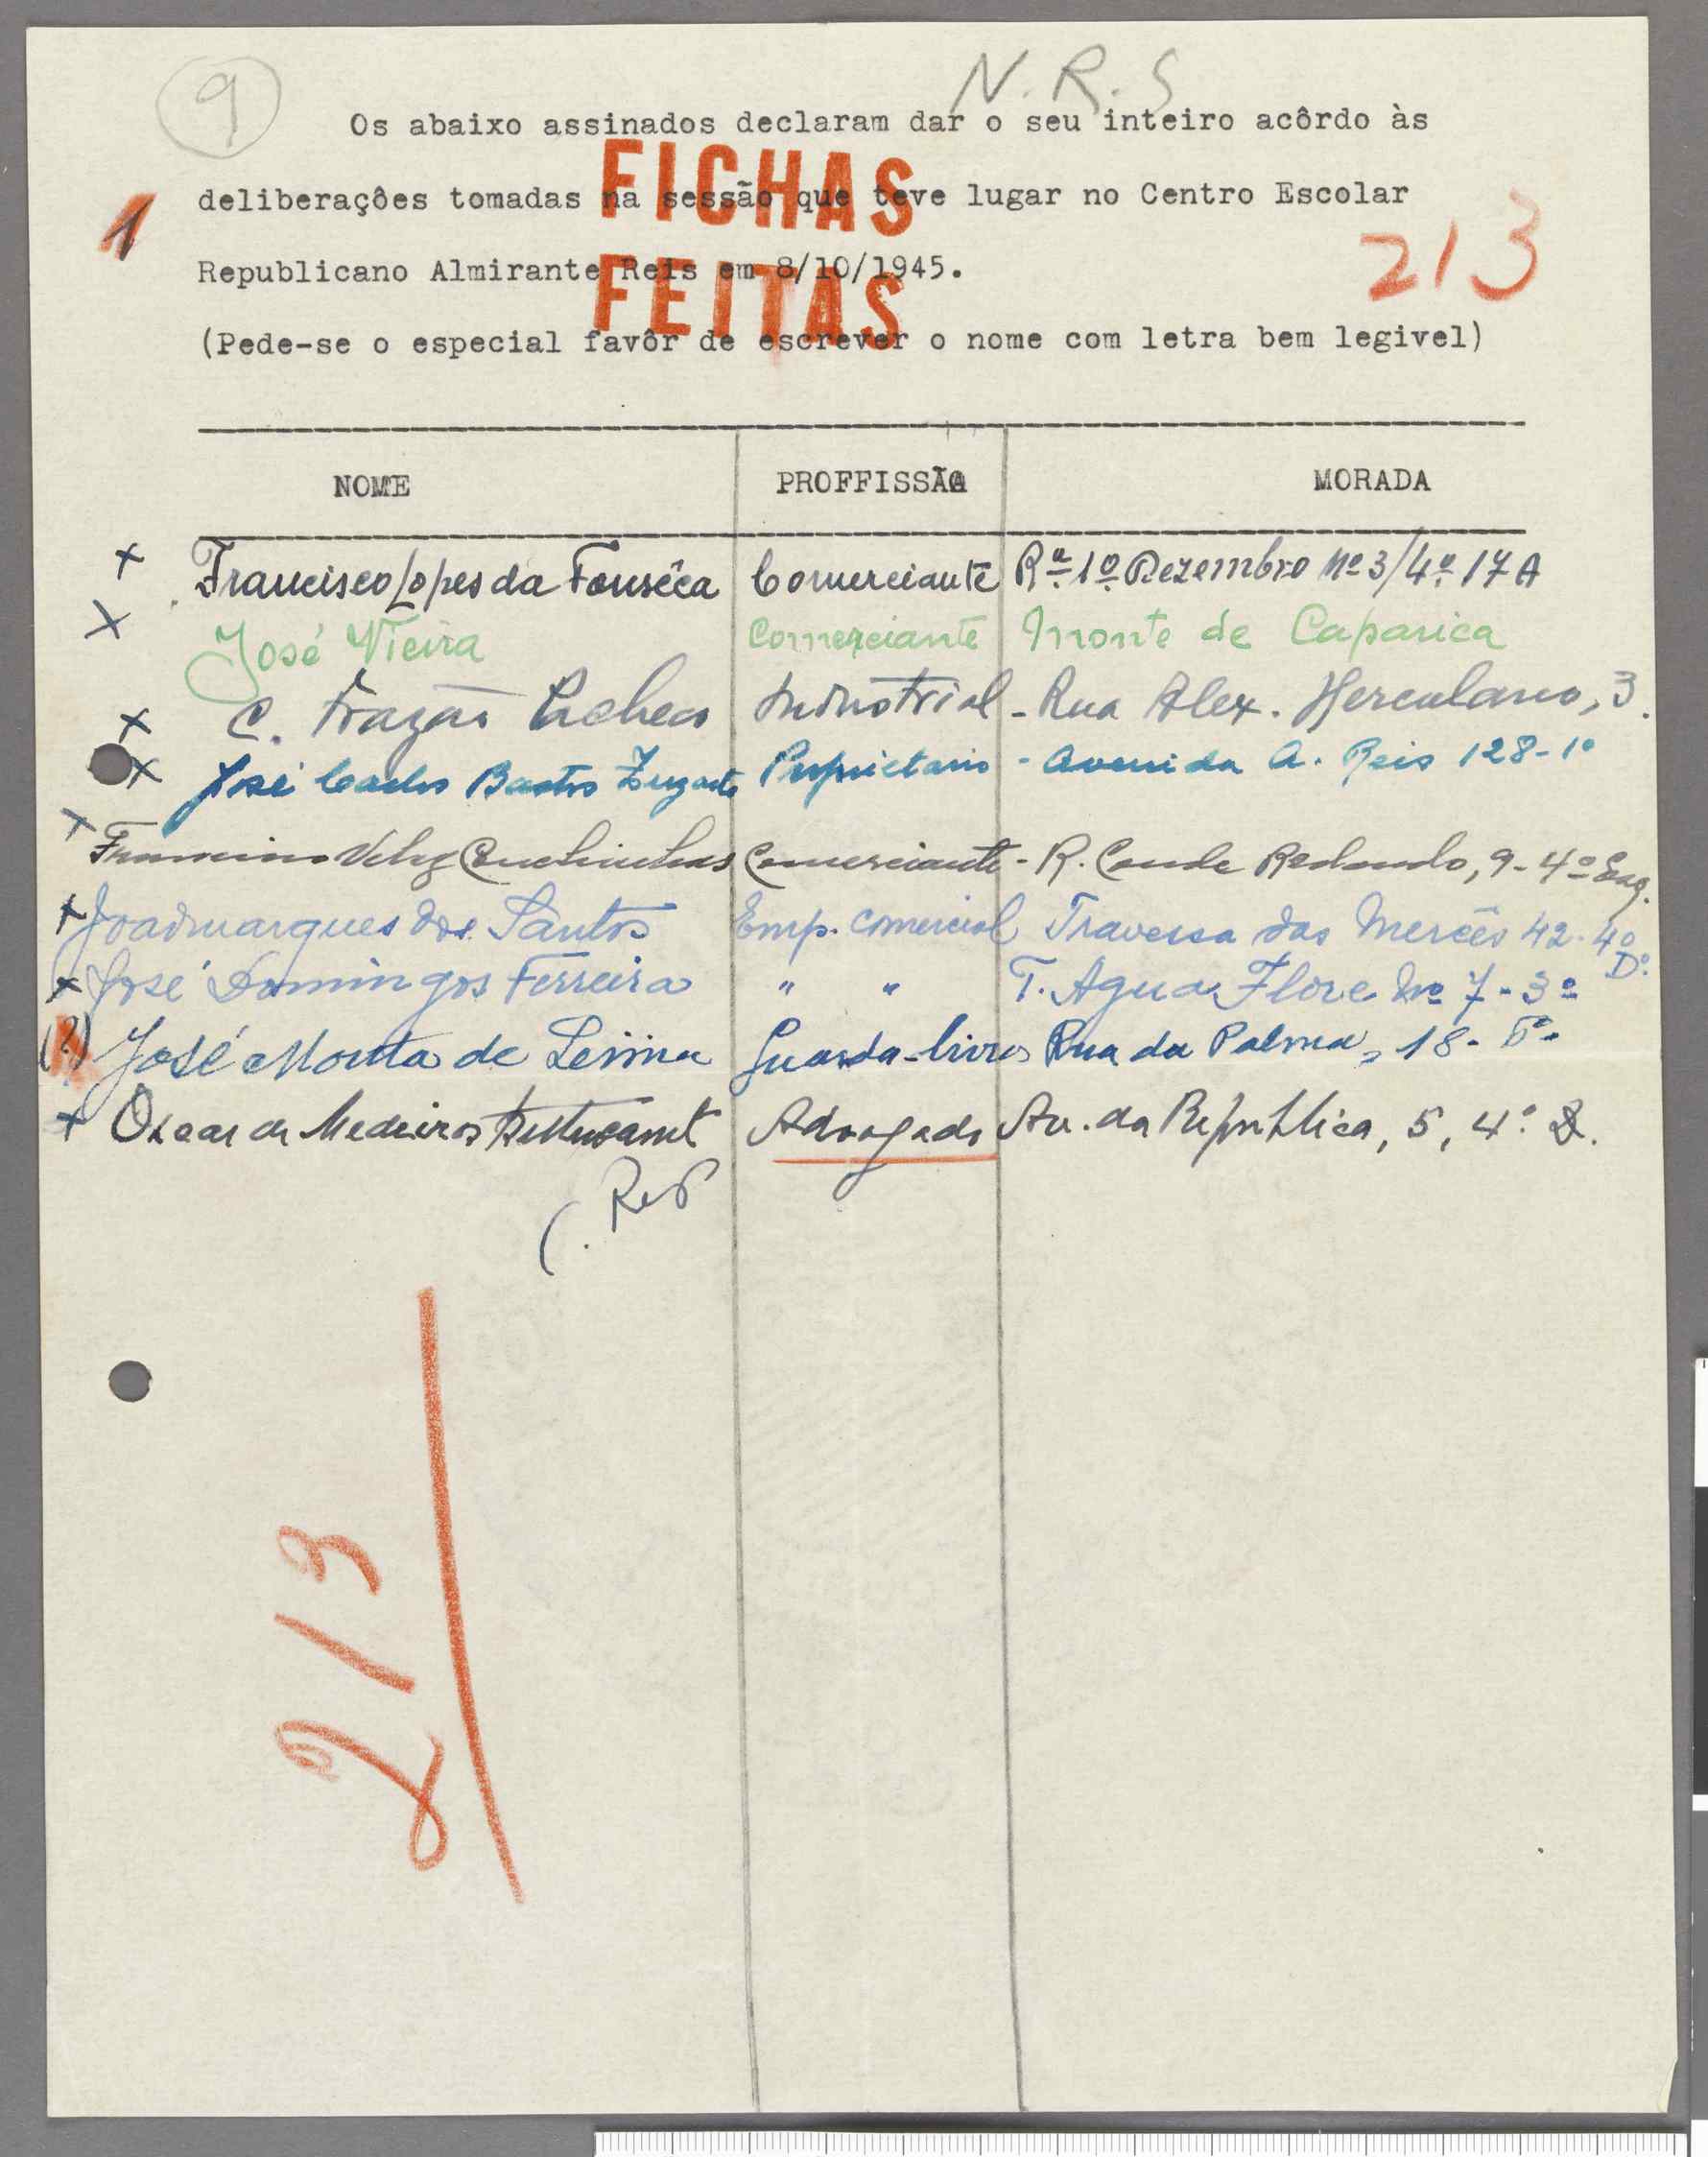 9
N. R. S
Os abaixo assinados declaram dar o seu inteiro acôrdo às
1
FICHAS
deliberações tomadas na sessão que teve lugar no Centro Escolar
213
Republicano Almirante Reis em 8/10/1945.
FEITAS
(Pede-se o especial favôr de escrever o nome com letra bem legivel)
NOME PROFFISSÃO MORADA
x Francisco Lopes da Fonsêca Comerciante Rª. 1º. Dezembro Nº 3/4º. 17 A
x José Vieira Comerciante Monte de Caparica
x C. Frazão Industrial - Rua Alex. Herculano, 3.
x José Carlos Bastos Proprietario - Avenida A. Reis 128-1º
x Comerciante - R. Conde Redondo, 9-4º Esq.
x Marques dos Santos Emp. Comercial Travessa das Mercês 42-4º Dº.
x José Domingos Ferreira " " T. Agua Flore Nº 7-3º
(?) José Moutta de Guarda-livros Rua da Palma, 18-
x Oscar de Medeiros Advogado Av. da República, 5, 4.º D.
213